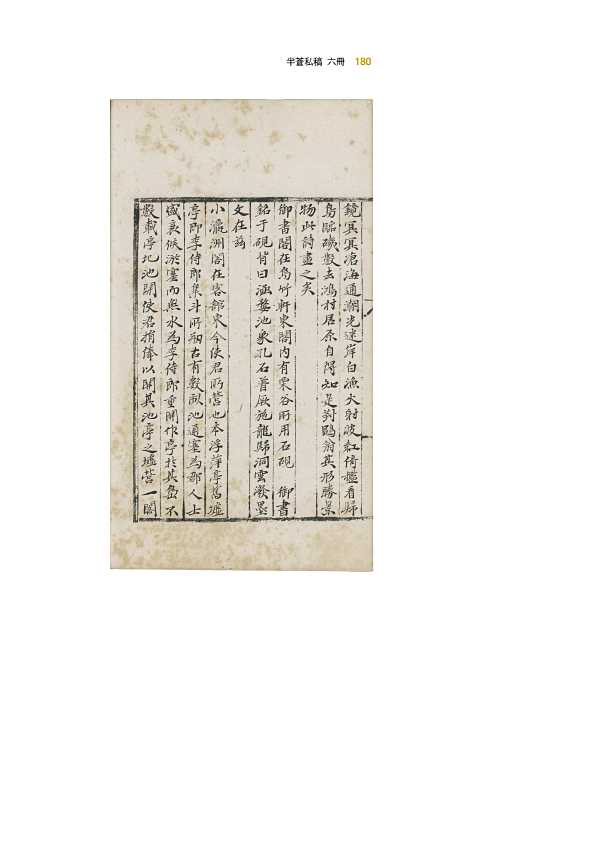 半蒼私稿 六冊 180
鏡冥冥滄海通潮光迷岸白漁火射波紅倚檻看歸
鳥臨磯數去鴻村居系自得知是對鷗翁其形勝景
物此詩盡之矣
御書閣在烏竹軒東閣內有栗谷所用石硯 御書
銘于硯背曰涵婺池象孔石普厥施龍歸洞雲潑墨
文在玆
小瀛洲閣在客館東今使君所營也本浮萍亭舊墟
亭即李侍郎集斗所刱古有數畝池通塞為郡人士
盛衰候淤塞而無水為李侍郎重開作亭於其島不
數載亭圮池開使君捐俸以開其池亭之墟營一閣